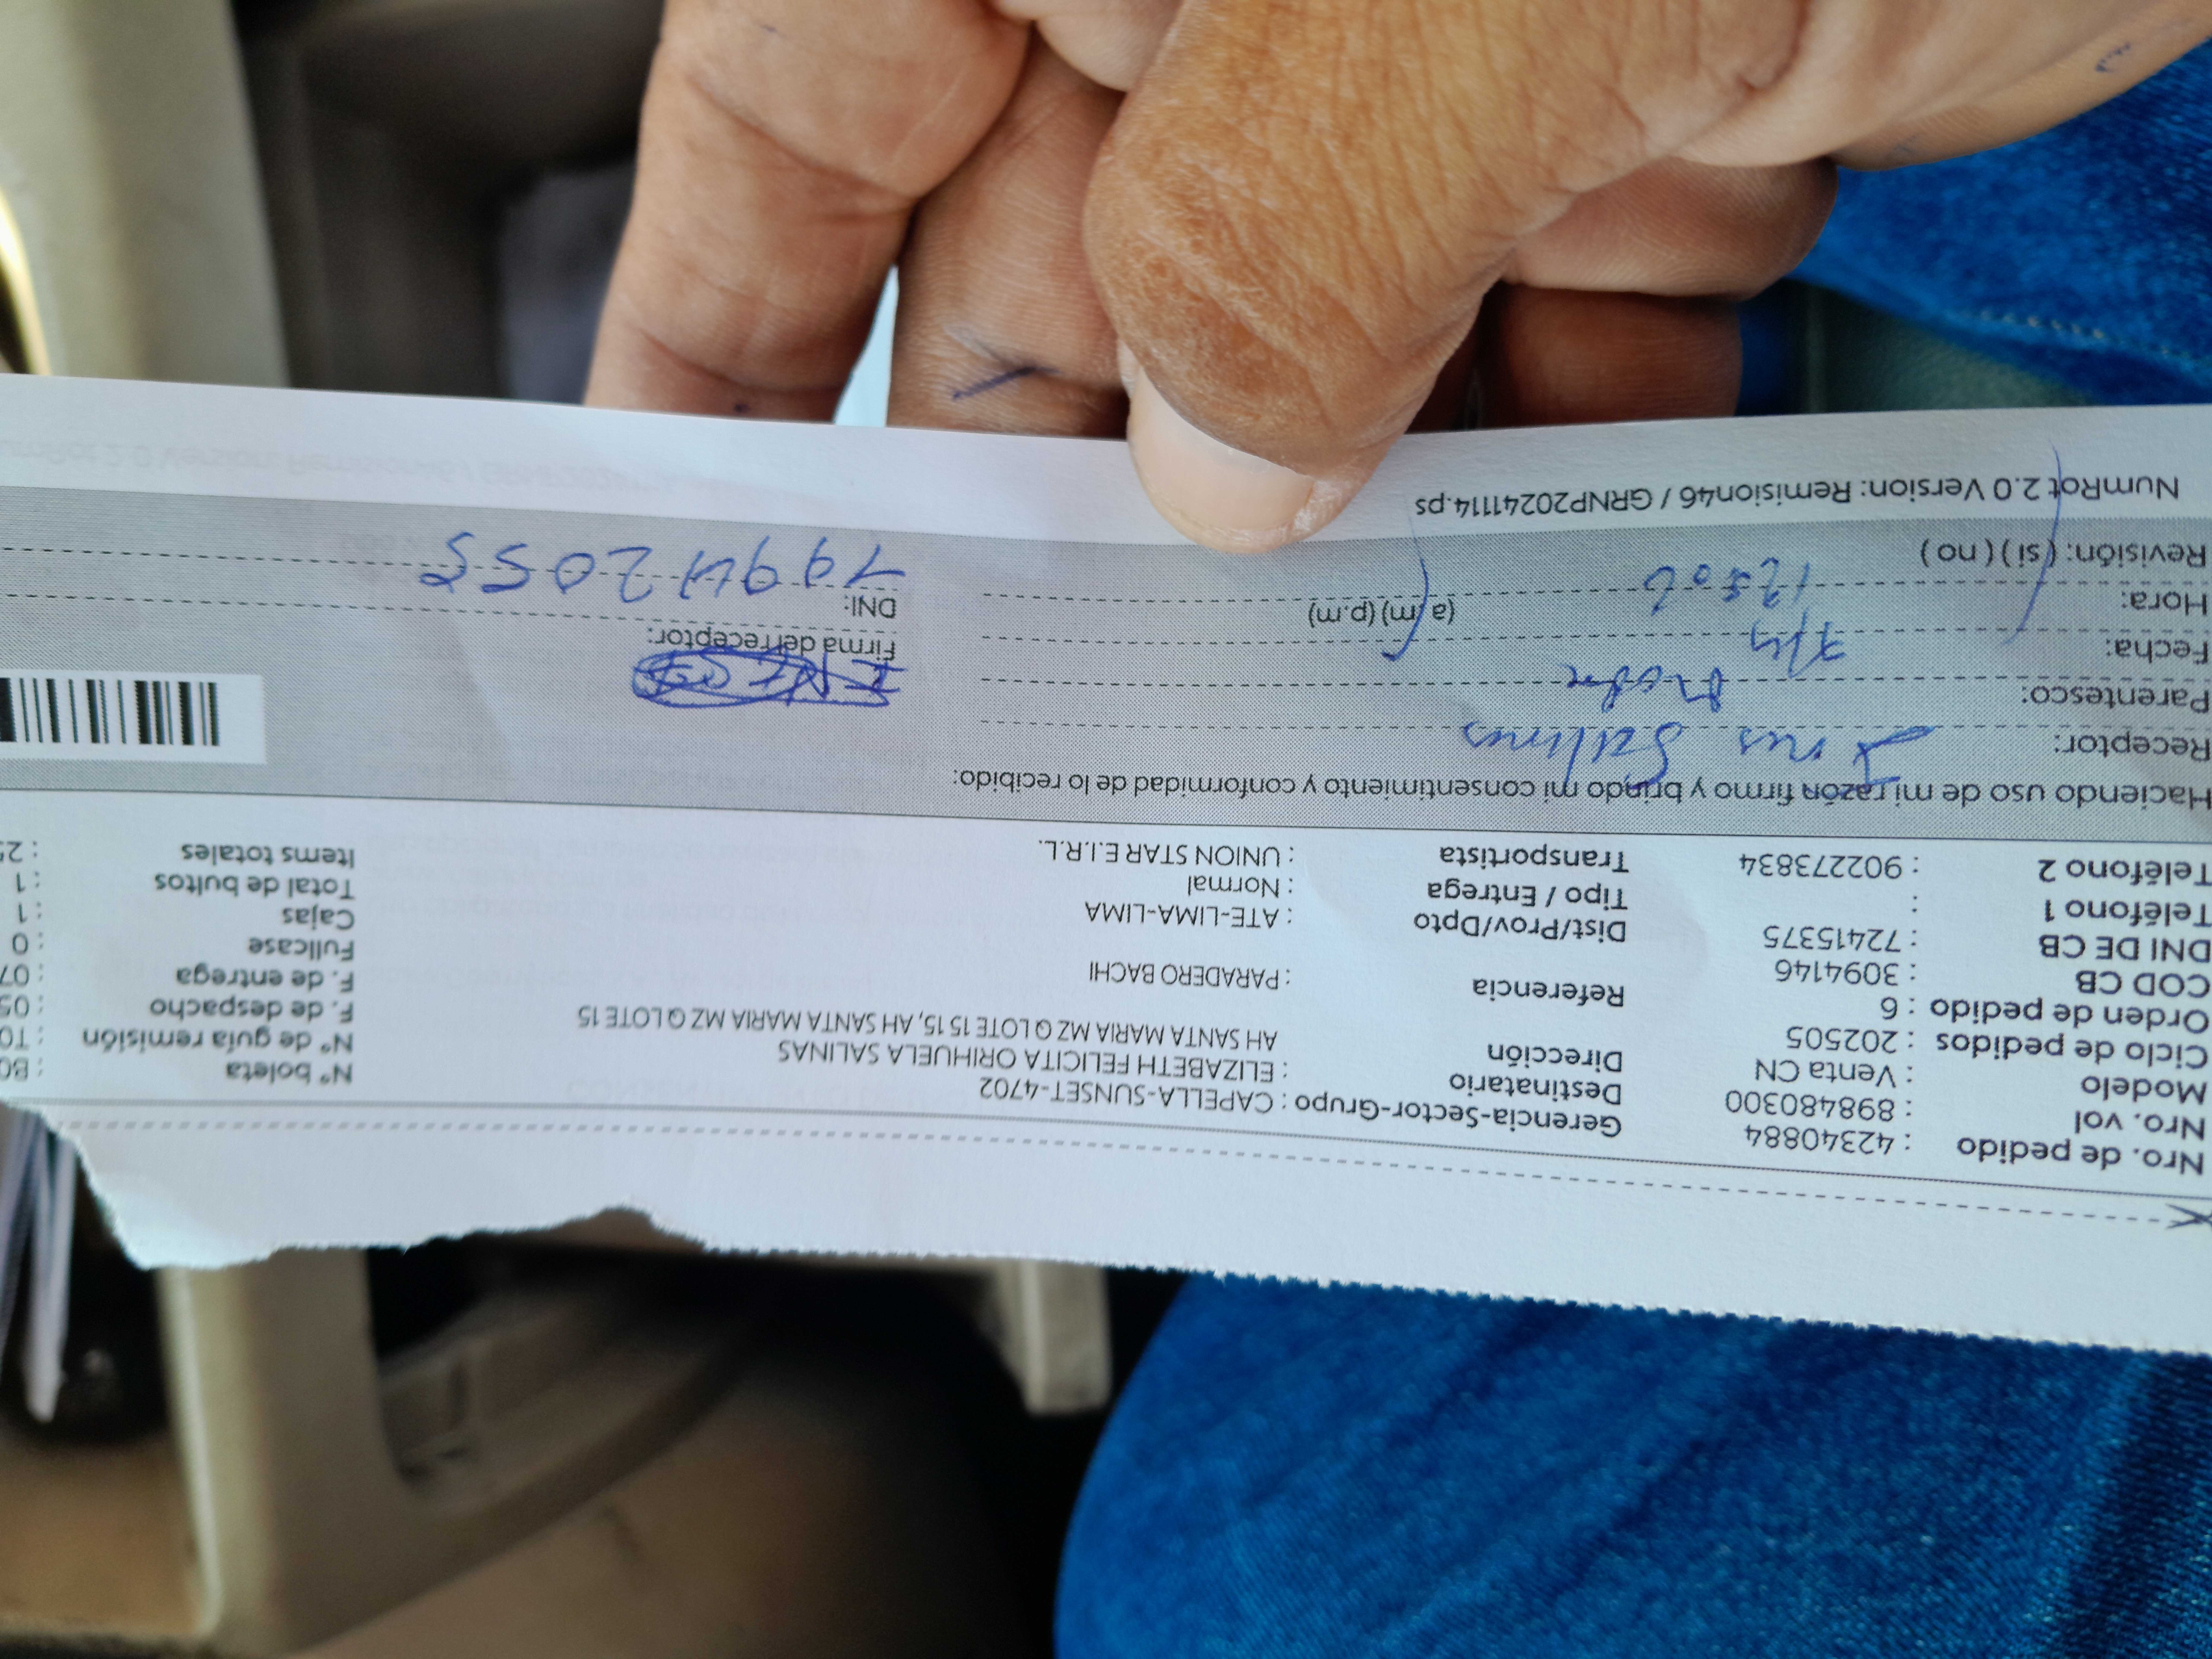 Nro. de pedido : 42340884 Gerencia-Sector-Grupo : CAPELLA-SUNSET-4702 N° boleta : B0
Nro. vol : 898480300 Destinatario : ELIZABETH FELICITA ORIHUELA SALINAS N° de guía remisión : T0
Modelo : Venta CN Dirección AH SANTA MARIA MZ Q LOTE 15 15, AH SANTA MARIA MZ Q LOTE 15 F. de despacho : 05
Ciclo de pedidos : 202505 F. de entrega : 07
Orden de pedido : 6 Referencia : PARADERO BACHI Fullcase : 0
COD CB : 3094146 Cajas : 1
DNI DE CB : 72415375 Dist/Prov/Dpto : ATE-LIMA-LIMA Total de bultos : 1
Teléfono 1 : Tipo / Entrega : Normal Items totales : 25
Teléfono 2 : 902273834 Transportista : UNION STAR E.I.R.L.
Haciendo uso de mi razón firmo y brindo mi consentimiento y conformidad de lo recibido:
Receptor: Ines Salinas
Parentesco: madre
Fecha: 7/4 Firma del receptor:
Hora: (a.m) (p.m) DNI:
Revisión: (si) (no)
NumRot 2.0 Version: Remision46 / GRNP20241114.ps